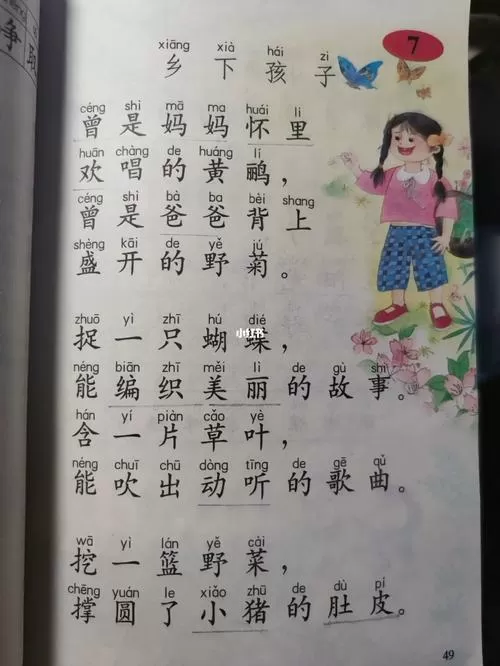 争 取
7
xiāng xià hái zi
乡下孩子
céng shì mā ma huái li
曾是妈妈怀里
huān chàng de huáng lí
欢唱的黄鹂，
céng shì bà ba bèi shang
曾是爸爸背上
shèng kāi de yě jú
盛开的野菊。
zhuō yì zhī hú dié
捉一只蝴蝶，
néng biān zhī měi lì de gù shi
能编织美丽的故事。
hán yí piàn cǎo yè
含一片草叶，
néng chuī chū dòng tīng de gē qǔ
能吹出动听的歌曲。
wā yì lán yě cài
挖一篮野菜，
chēng yuán le xiǎo zhū de dù pí
撑圆了小猪的肚皮。
小红书
49